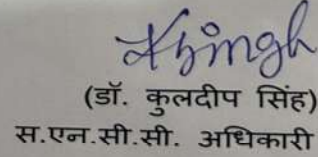 KSingh
(डॉ. कुलदीप सिंह)
स.एन.सी.सी. अधिकारी